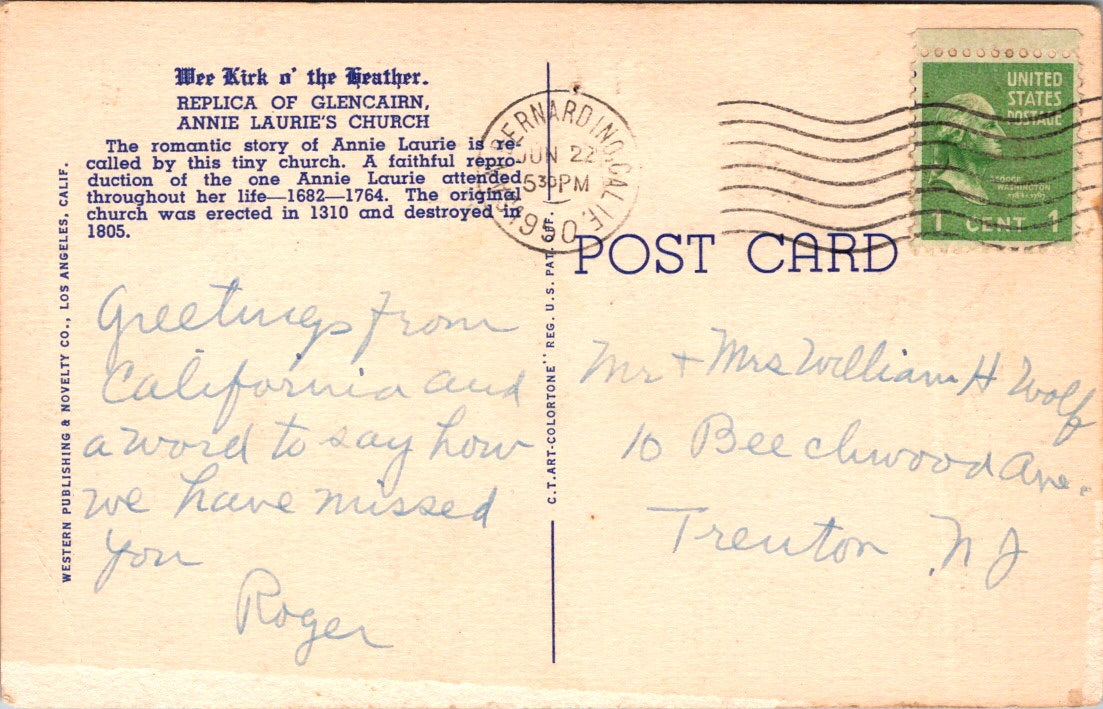 Wee Kirk o' the Heather.
REPLICA OF GLENCAIRN,
ANNIE LAURIE'S CHURCH
The romantic story of Annie Laurie is re-
called by this tiny church. A faithful repro-
duction of the one Annie Laurie attended
throughout her life—1682—1764. The original
church was erected in 1310 and destroyed in
1805.
WESTERN PUBLISHING & NOVELTY CO., LOS ANGELES, CALIF.
Greetings from
California and
a word to say how
we have missed
you
Roger
C.T. ART-COLORTONE" REG. U.S. PAT. OFF.
SAN BERNARDINO, CALIF.
JUN 22
530 PM
1950
POST CARD
UNITED
STATES
POSTAGE
GEORGE
WASHINGTON
1 CENT 1
Mr + Mrs William H Wolf
10 Beechwood Ave.
Trenton NJ